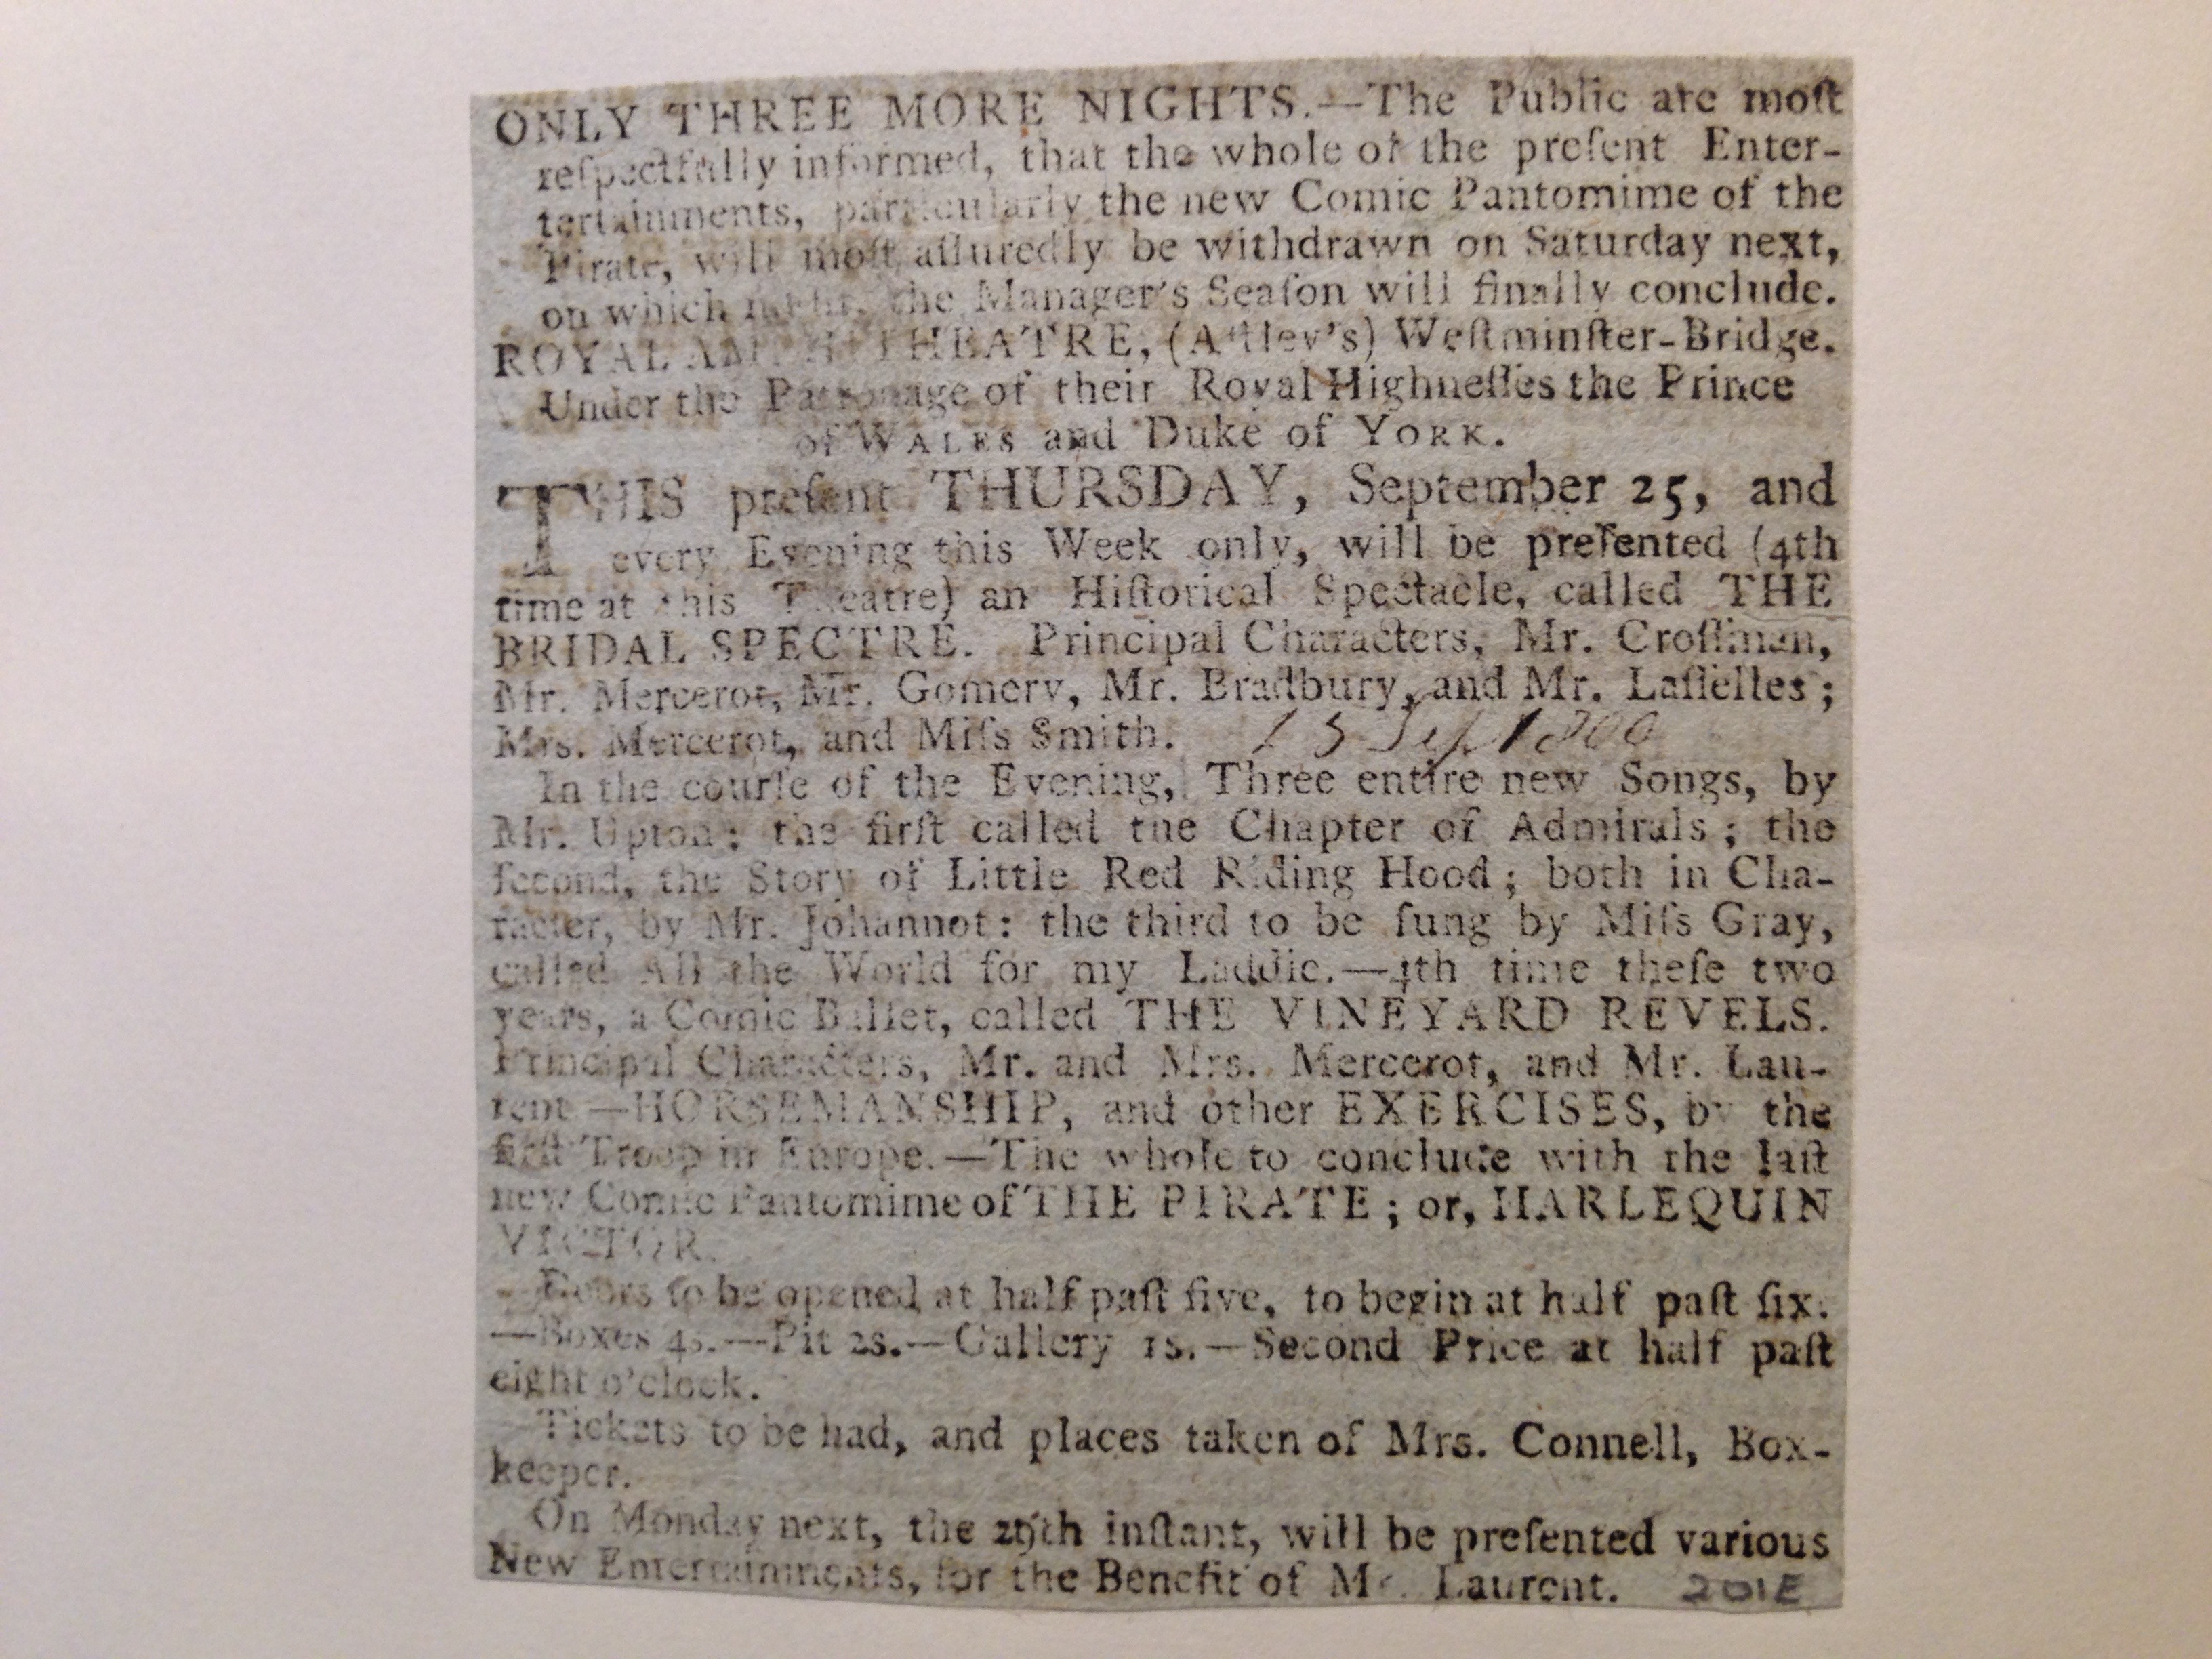 ONLY THREE MORE NIGHTS.—The Public are moſt
reſpectfully informed, that the whole of the preſent Enter-
tertainments, particularly the new Comic Pantomime of the
Pirate, will moſt aſſuredly be withdrawn on Saturday next,
on which night, the Manager's Seaſon will finally conclude.
ROYAL AMPHITHEATRE, (Aſtley's) Weſtminſter-Bridge.
Under the Patronage of their Royal Highneſſes the Prince
of WALES and Duke of YORK.
THIS preſent THURSDAY, September 25, and
every Evening this Week only, will be preſented (4th
time at this Theatre) an Hiſtorical Spectacle, called THE
BRIDAL SPECTRE. Principal Characters, Mr. Croſſman,
Mr. Mercerot, Mr. Gomery, Mr. Bradbury, and Mr. Laſſelles;
Mrs. Mercerot, and Miſs Smith. 25 Sep 1800
In the courſe of the Evening, Three entire new Songs, by
Mr. Upton: the firſt called the Chapter of Admirals; the
ſecond, the Story of Little Red Riding Hood; both in Cha-
racter, by Mr. Johannot: the third to be ſung by Miſs Gray,
called All the World for my Laddie.—4th time theſe two
years, a Comic Ballet, called THE VINEYARD REVELS.
Principal Characters, Mr. and Mrs. Mercerot, and Mr. Lau-
rent—HORSEMANSHIP, and other EXERCISES, by the
firſt Troop in Europe.—The whole to conclude with the laſt
new Comic Pantomime of THE PIRATE; or, HARLEQUIN
VICTOR.
Doors to be opened at half paſt five, to begin at half paſt ſix.
—Boxes 4s.—Pit 2s.—Gallery 1s.—Second Price at half paſt
eight o'clock.
Tickets to be had, and places taken of Mrs. Connell, Box-
keeper.
On Monday next, the 29th inſtant, will be preſented various
New Entertainments, for the Benefit of Mr. Laurent. 201E